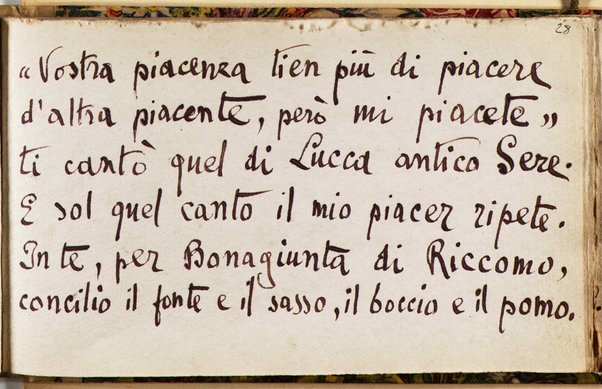 28
«Vostra piacenza tien più di piacere
d'altra piacente, però mi piacete»
ti cantò quel di Lucca antico Sere.
E sol quel canto il mio piacer ripete.
In te, per Bonagiunta di Riccomo,
concilio il fonte e il sasso, il boccio e il pomo.